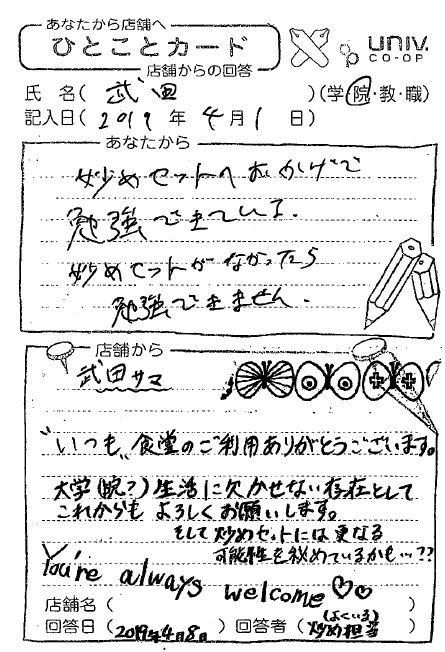 あなたから店舗へ
ひとことカード
店舗からの回答
UNIV.
CO-OP
氏 名( 武田 )(学・院・教・職)
記入日( 2019 年 4 月 1 日)
あなたから
炒めセットのおかげで
勉強できている.
炒めセットがなかったら
勉強できません.
店舗から
武田サマ
"いつも"食堂のご利用ありがとうございます。
大学(院?)生活に欠かせない存在として
これからもよろしくお願いします。
そして炒めセットには更なる
可能性を秘めているかも…??
You're always welcome ♡♡
店舗名( )
回答日( 2019年4月8日 ) 回答者( (よくいる)炒め担当 )